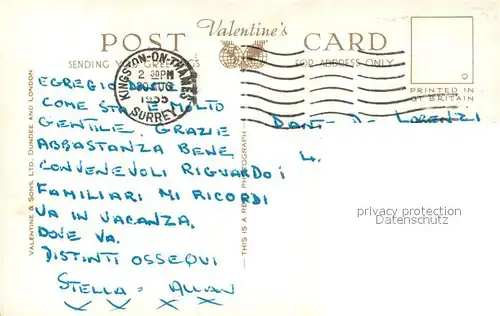 Valentine's
POST CARD
SENDING YOU GREETINGS
FOR ADDRESS ONLY
KINGSTON-ON-THAMES
2 30PM
AUG
1955
SURREY
PRINTED IN
GT BRITAIN
EGREGIO
COME STA E MOLTO
GENTILE. GRAZIE
ABBASTANZA BENE
CONVENEVOLI RIGUARDO i
FAMILIARI MI RICORDI
VA IN VACANZA.
DOVE VA.
DISTINTI OSSEQUI
STELLA - ALLAN
V V X X
DANTE D. LORENZI
4.
VALENTINE & SONS, LTD., DUNDEE AND LONDON
THIS IS A REAL PHOTOGRAPH
privacy protection
Datenschutz